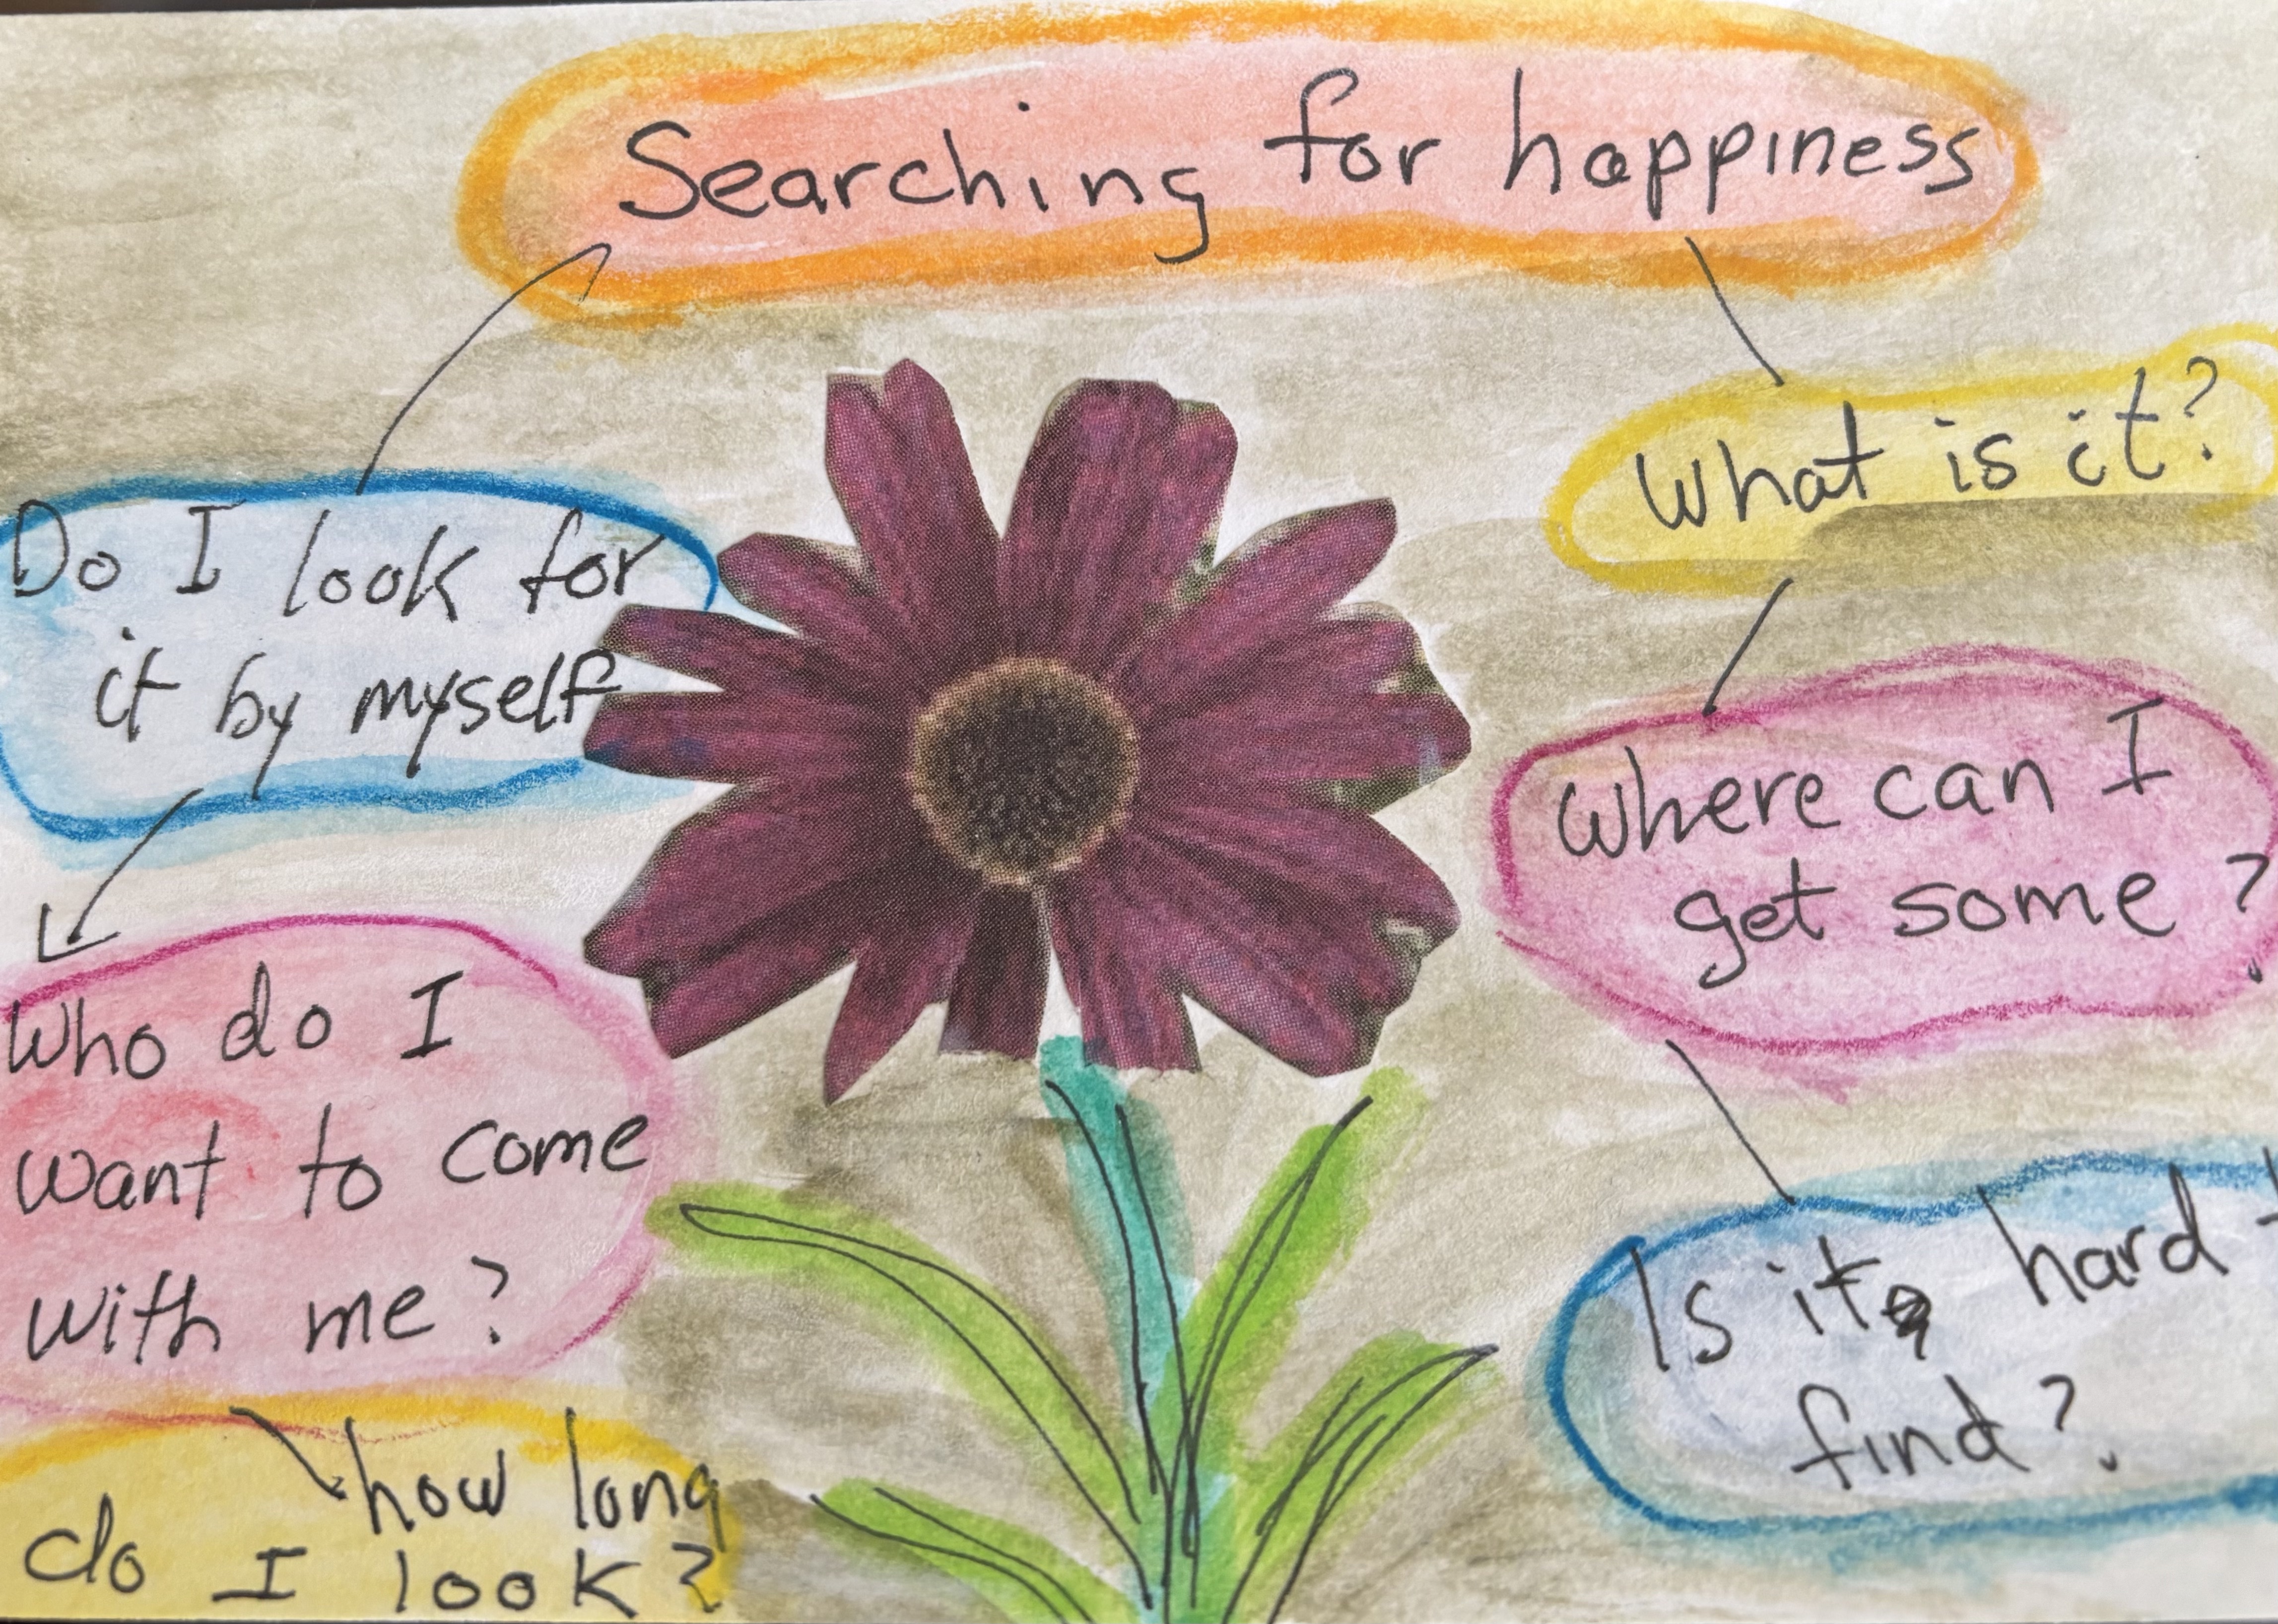 Searching for happiness
What is it?
Where can I
get some?
Is it hard
find?
Do I look for
it by myself
Who do I
want to come
with me?
how long
do I look?